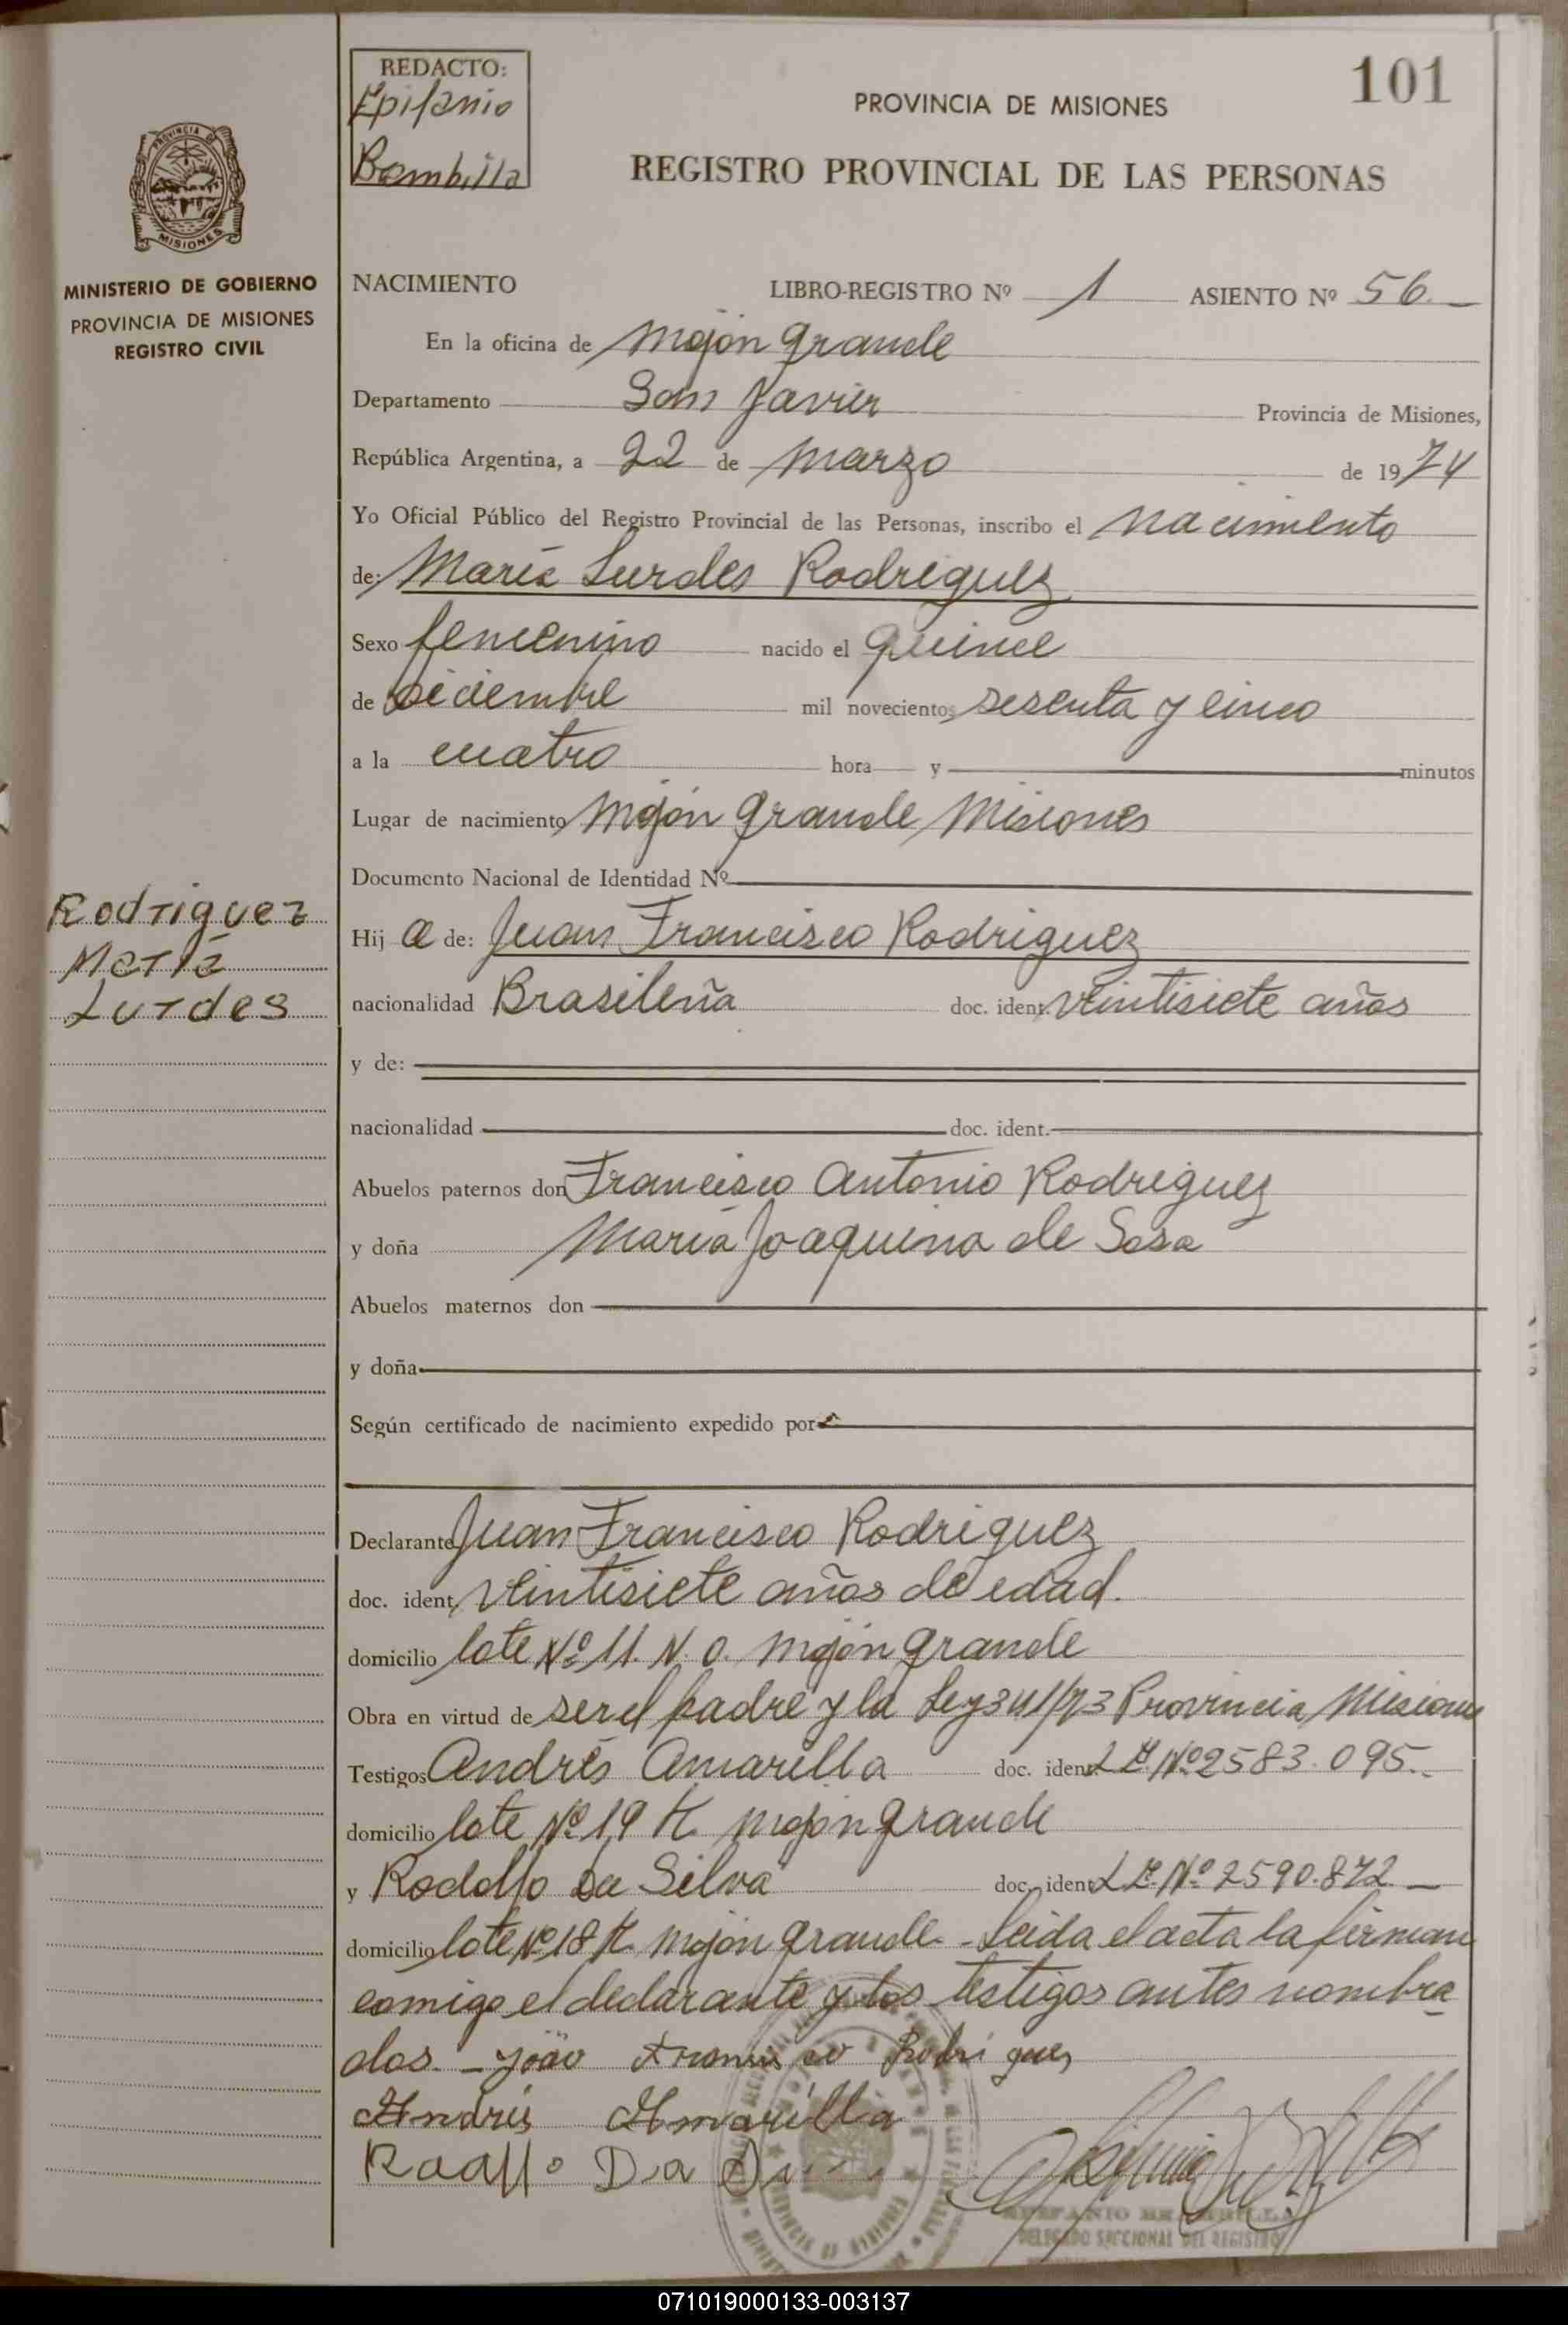 101
REDACTO:
Epifanio
Bombilla
PROVINCIA DE MISIONES
REGISTRO PROVINCIAL DE LAS PERSONAS
PROVINCIA DE
MISIONES
MINISTERIO DE GOBIERNO
PROVINCIA DE MISIONES
REGISTRO CIVIL
NACIMIENTO LIBRO-REGISTRO Nº 1 ASIENTO Nº 56.
En la oficina de Mojón Grande
Departamento San Javier Provincia de Misiones,
República Argentina, a 22 de Marzo de 1974
Yo Oficial Público del Registro Provincial de las Personas, inscribo el Nacimiento
de: María Lurdes Rodriguez
Sexo femenino nacido el quince
de Diciembre mil novecientos sesenta y cinco
a la cuatro hora y minutos
Lugar de nacimiento Mojón Grande Misiones
Documento Nacional de Identidad Nº
Rodriguez
María
Lurdes
Hij a de: Juan Francisco Rodriguez
nacionalidad Brasileña doc. ident. veintisiete años
y de:
nacionalidad doc. ident.
Abuelos paternos don Francisco Antonio Rodriguez
y doña María Joaquina de Sosa
Abuelos maternos don
y doña
Según certificado de nacimiento expedido por
Declarante Juan Francisco Rodriguez
doc. ident. veintisiete años de edad.
domicilio lote Nº 11. N. O. Mojón Grande
Obra en virtud de ser el padre y la Ley 341/73 Provincia Misiones
Testigos Andrés Amarilla doc. ident. L E. Nº 2583.095.
domicilio lote Nº 19 Mojón Grande
y Rodolfo Da Silva doc. ident. L E. Nº 2590.872
domicilio lote Nº 18 Mojón Grande - Leida el acta la firman
comigo el declarante y los testigos antes nombra
dos. - João Francisco Rodrigues
Andrés Amarilla
Da
DELEGADO SECCIONAL DEL REGISTRO
071019000133-003137